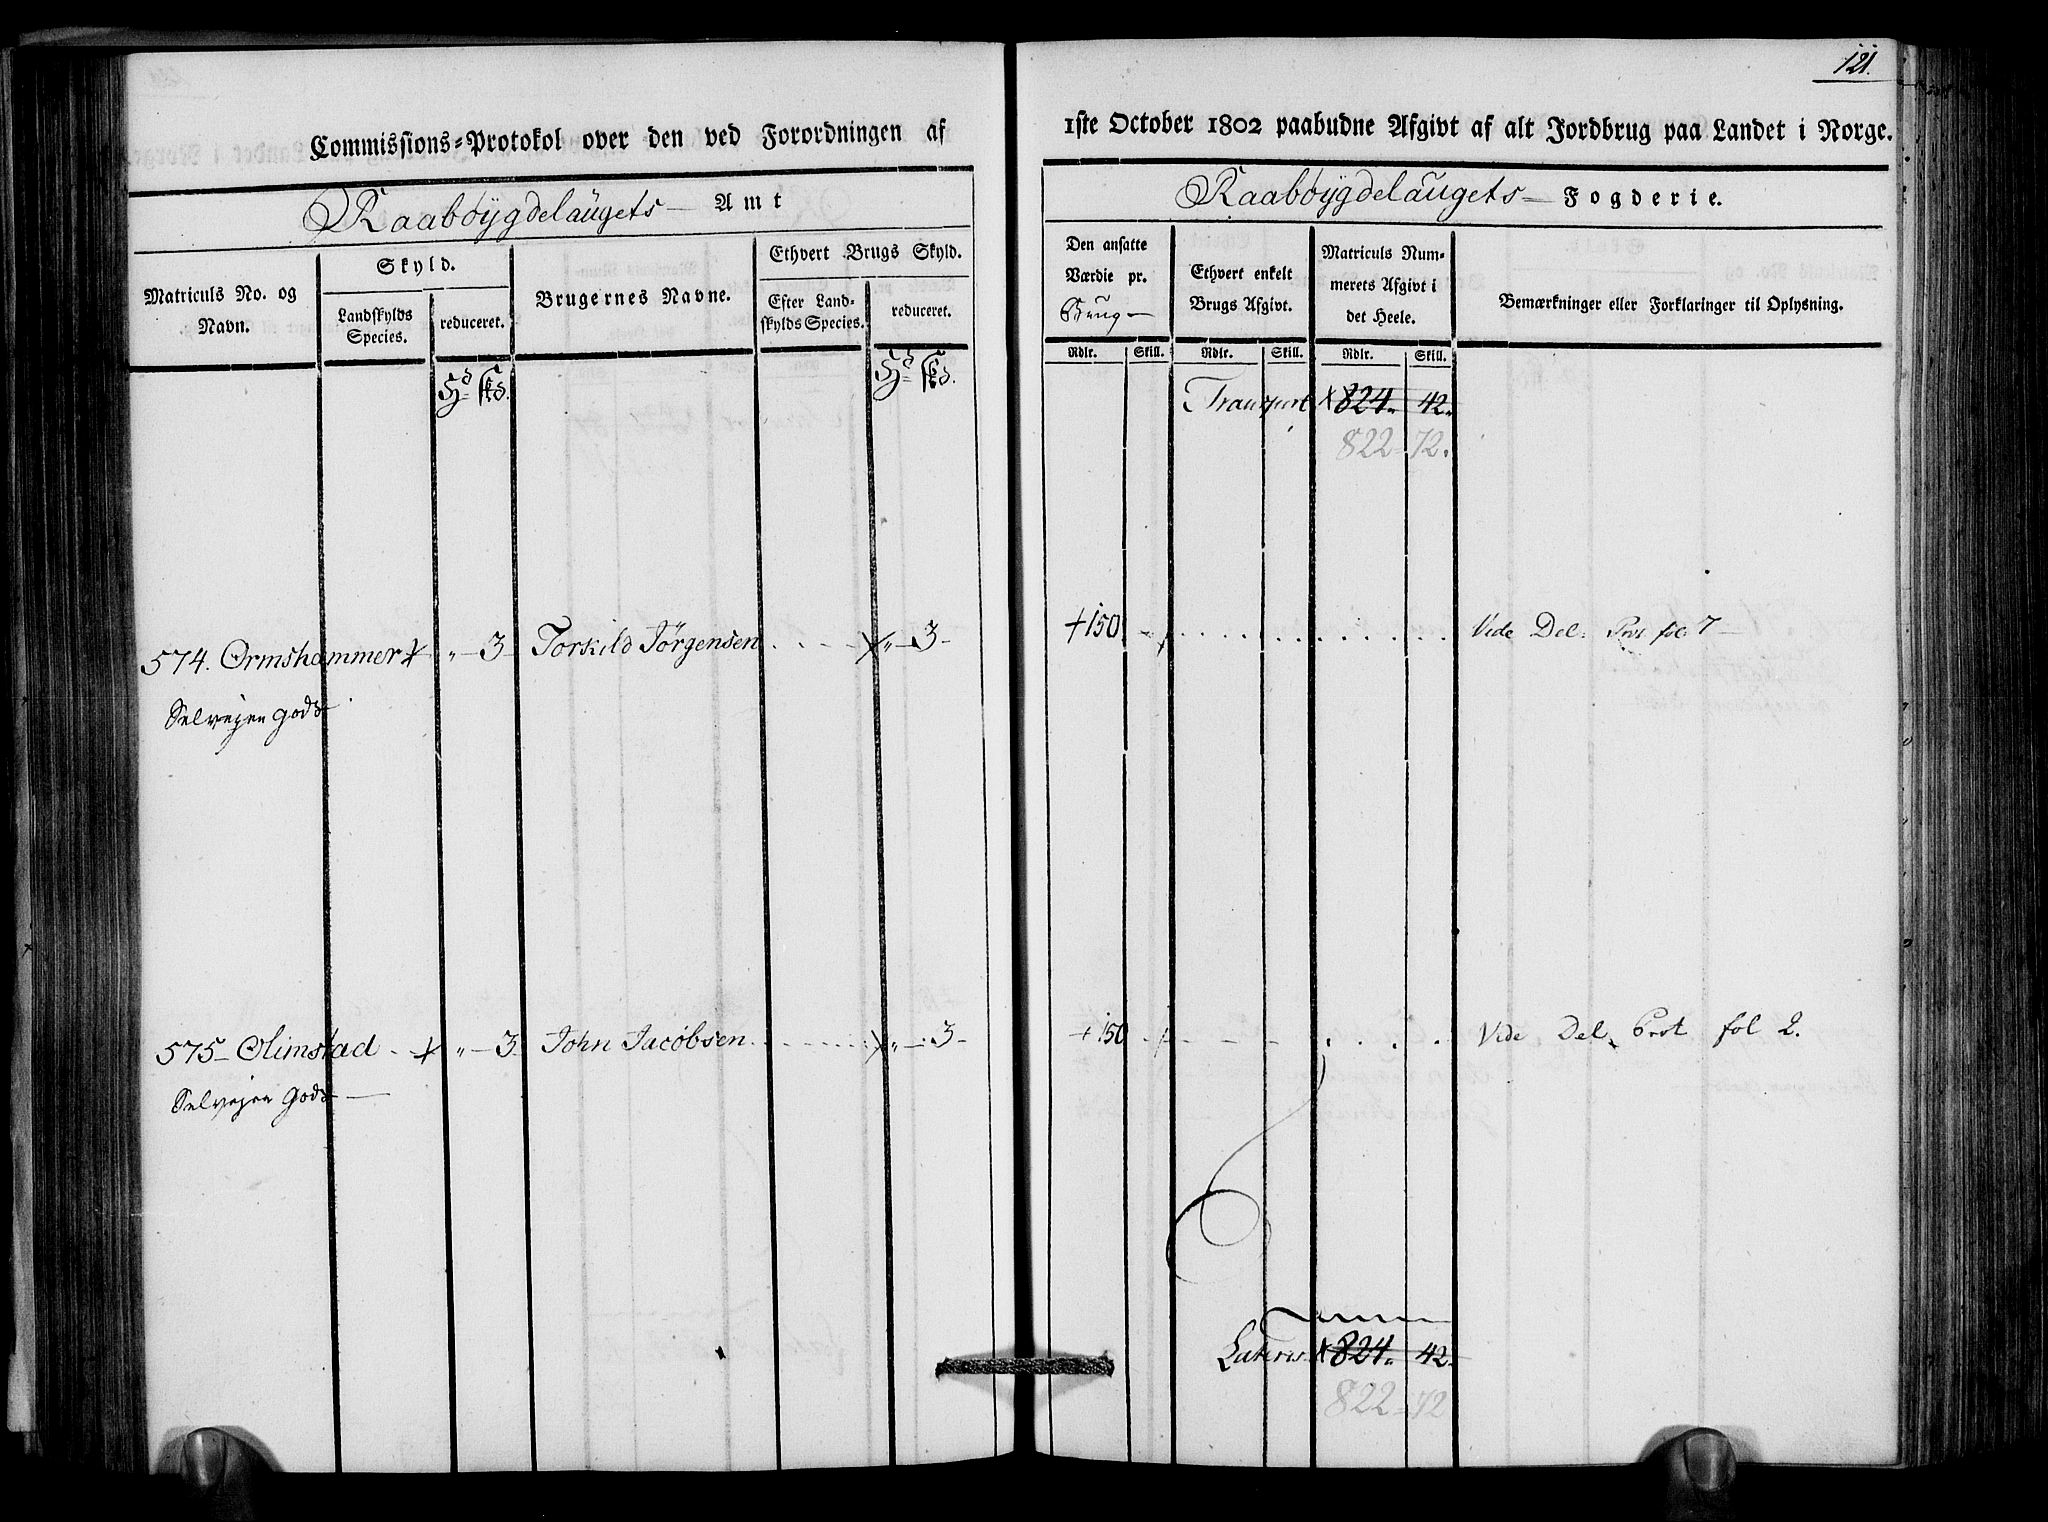 121.
Commissions=Protokol over den ved Forordningen af
1ste October 1802 paabudne Afgivt af alt Jordbrug paa Landet i Norge.
Raabøygdelaugets — Amt
Raabøygdelaugets — Fogderie.
Matriculs No. og Navn.
Skyld.
Landskylds Species.
reduceret.
Brugernes Navne.
Ethvert Brugs Skyld.
Efter Land-skylds Species.
reduceret.
Den ansatte Værdie pr. Brug —
Ethvert enkelt Brugs Afgivt.
Matriculs Num-merets Afgivt i det Heele.
Bemærkninger eller Forklaringer til Oplysning.
Rdlr. Skill. Rdlr. Skill. Rdlr. Skill.
Transport 824. 42.
822 72.
574. Ormshammer " 3 Torkild Jørgensen " 3 + 150 Vide Del: Prot fol 7
Selvejer gods
575 Olimstad " 3 John Jacobsen " 3 + 150 Vide Del. Prot fol 2.
Selvejer Gods
Lateris 824. 42.
822 72